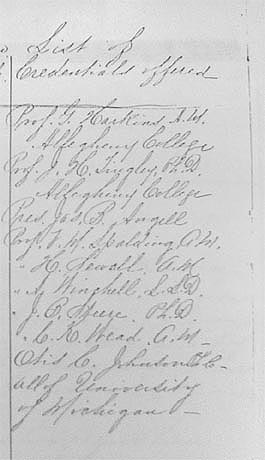 List of
Credentials offered
Prof. G. Haskins A.M.
Allegheny College
Prof. J. H. Tingley, Ph.D.
Allegheny College
Pres. Jas. B. Angell
Prof. V. M. Spalding, A.M.
" H. Sewall, A.M.
" A. Winchell, L.L.D.
" J. B. Steere, Ph.D.
" C. K. Wead, A.M.
Otis C. Johnson
all of University
of Michigan